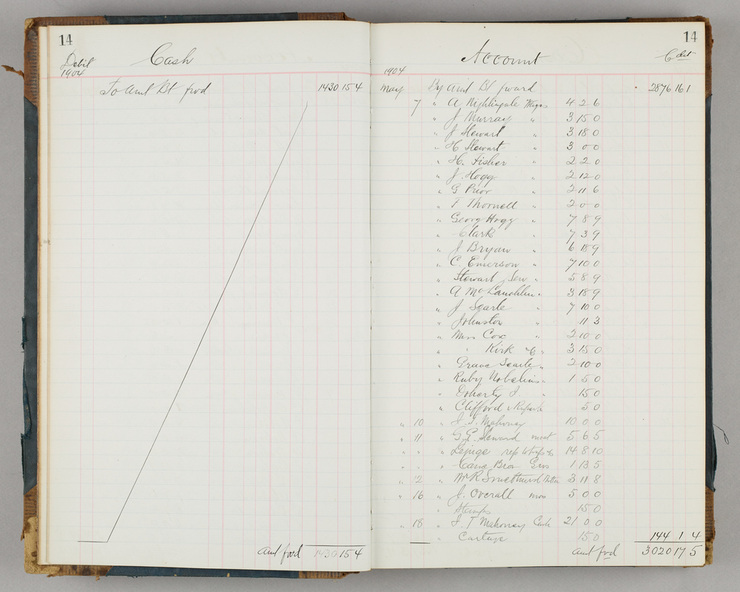 14
Cash
Debit
1904
To Amt Bt fwd 1430 15 4
Amt fwd 1430 15 4
14
Account
Cdit
1904
May By Amt Bt fward 2876 16 1
7 " A Nightingale Wages 4 2 6
" J Murray " 3 15 0
" J Stewart " 3 18 0
" H Stewart " 3 0 0
" H. Fisher " 2 2 0
" J Hogg " 2 12 0
" G Prior " 2 11 6
" T Thornell " 2 0 0
" Georg Hogg " 7 8 9
" Clark " 7 3 9
" J Bryan " 6 18 9
" C Emerson " 7 10 0
" Stewart Sen " 5 8 9
" A McLauchlin " 3 18 9
" J Searle " 7 10 0
" Johnston " 11 3
" Miss Cox " 2 10 0
" " Kirk " 3 15 0
" Searle " 2 10 0
" Ruby " 1 5 0
" Doherty J " 15 0
" Clifford 5 0
" 10 " J. T. Mahoney 10 0 0
" 11 " G E Steward meat 5 6 5
" " " 14 8 10
" " " Gro 1 13 5
" 12 " Mr R Smethurst 3 11 8
" 16 " J. Overall 5 0 0
" Stamps 15 0
" 18 " J T Mahoney Cash 21 0 0
" Cartage 15 0 144 1 4
Amt fwd 3020 17 5